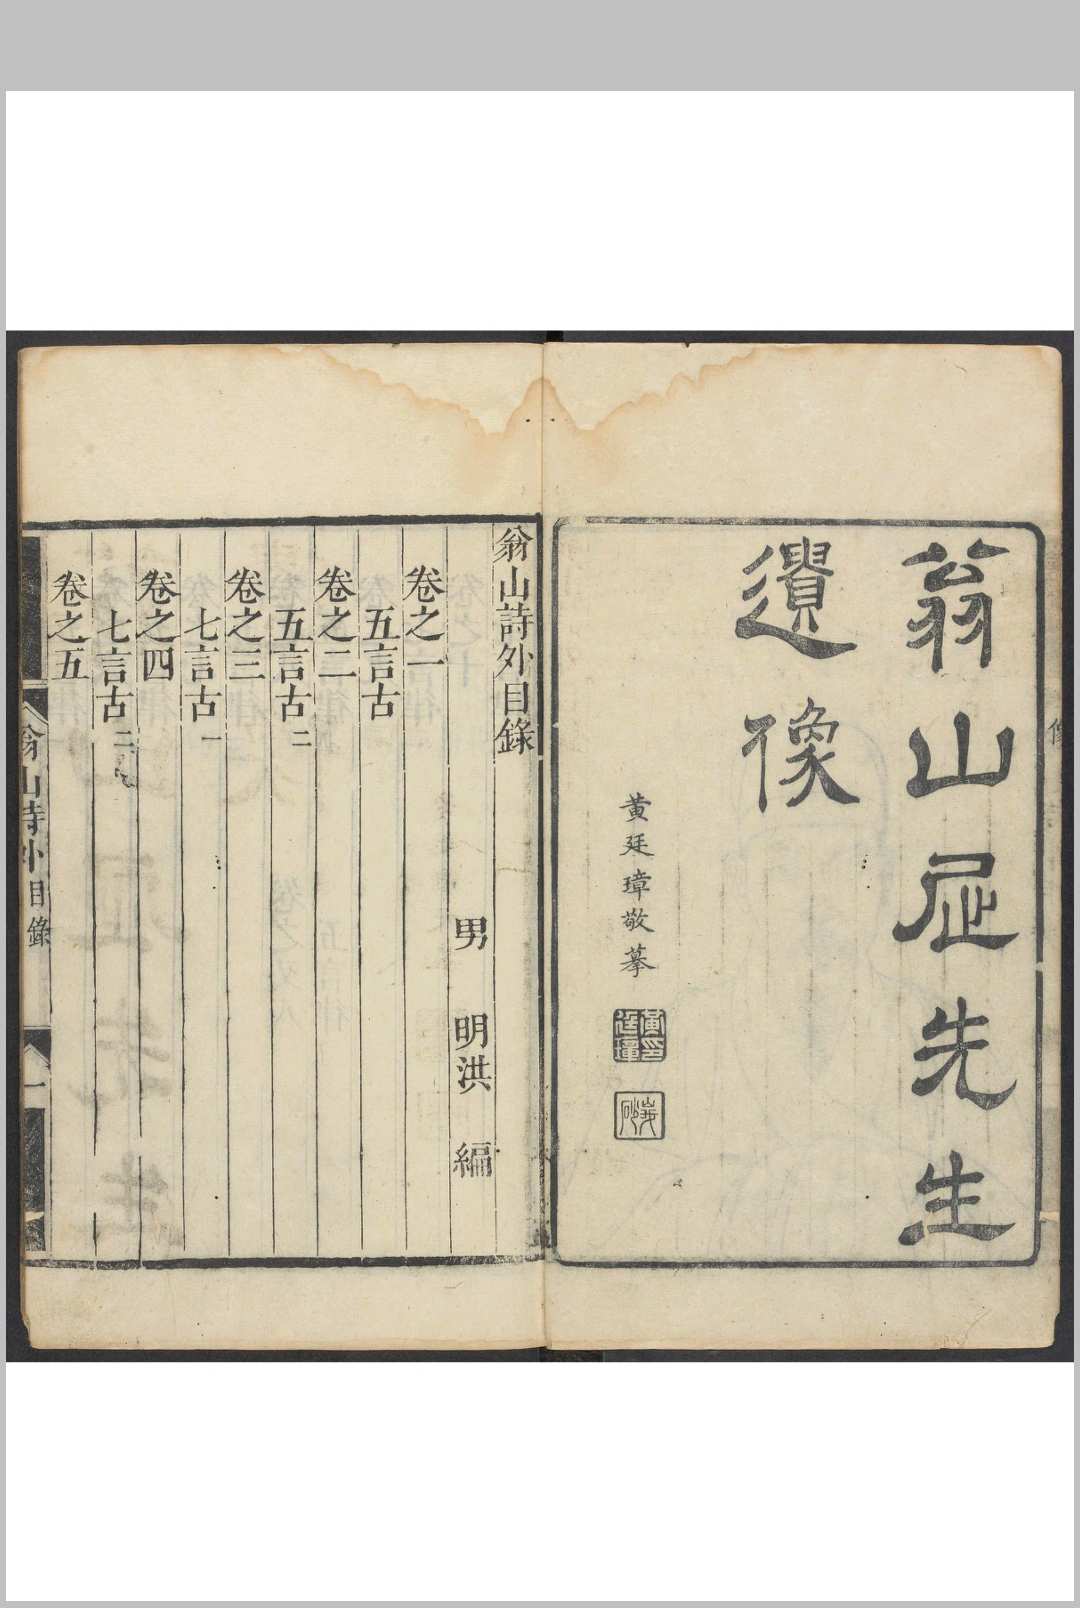 翁山屈先生
遺像
黃廷璋敬摹
翁山詩外目錄
男 明洪 編
卷之一
五言古
卷之二
五言古 二
卷之三
七言古 一
卷之四
七言古 二
卷之五
翁山詩外 目錄 一